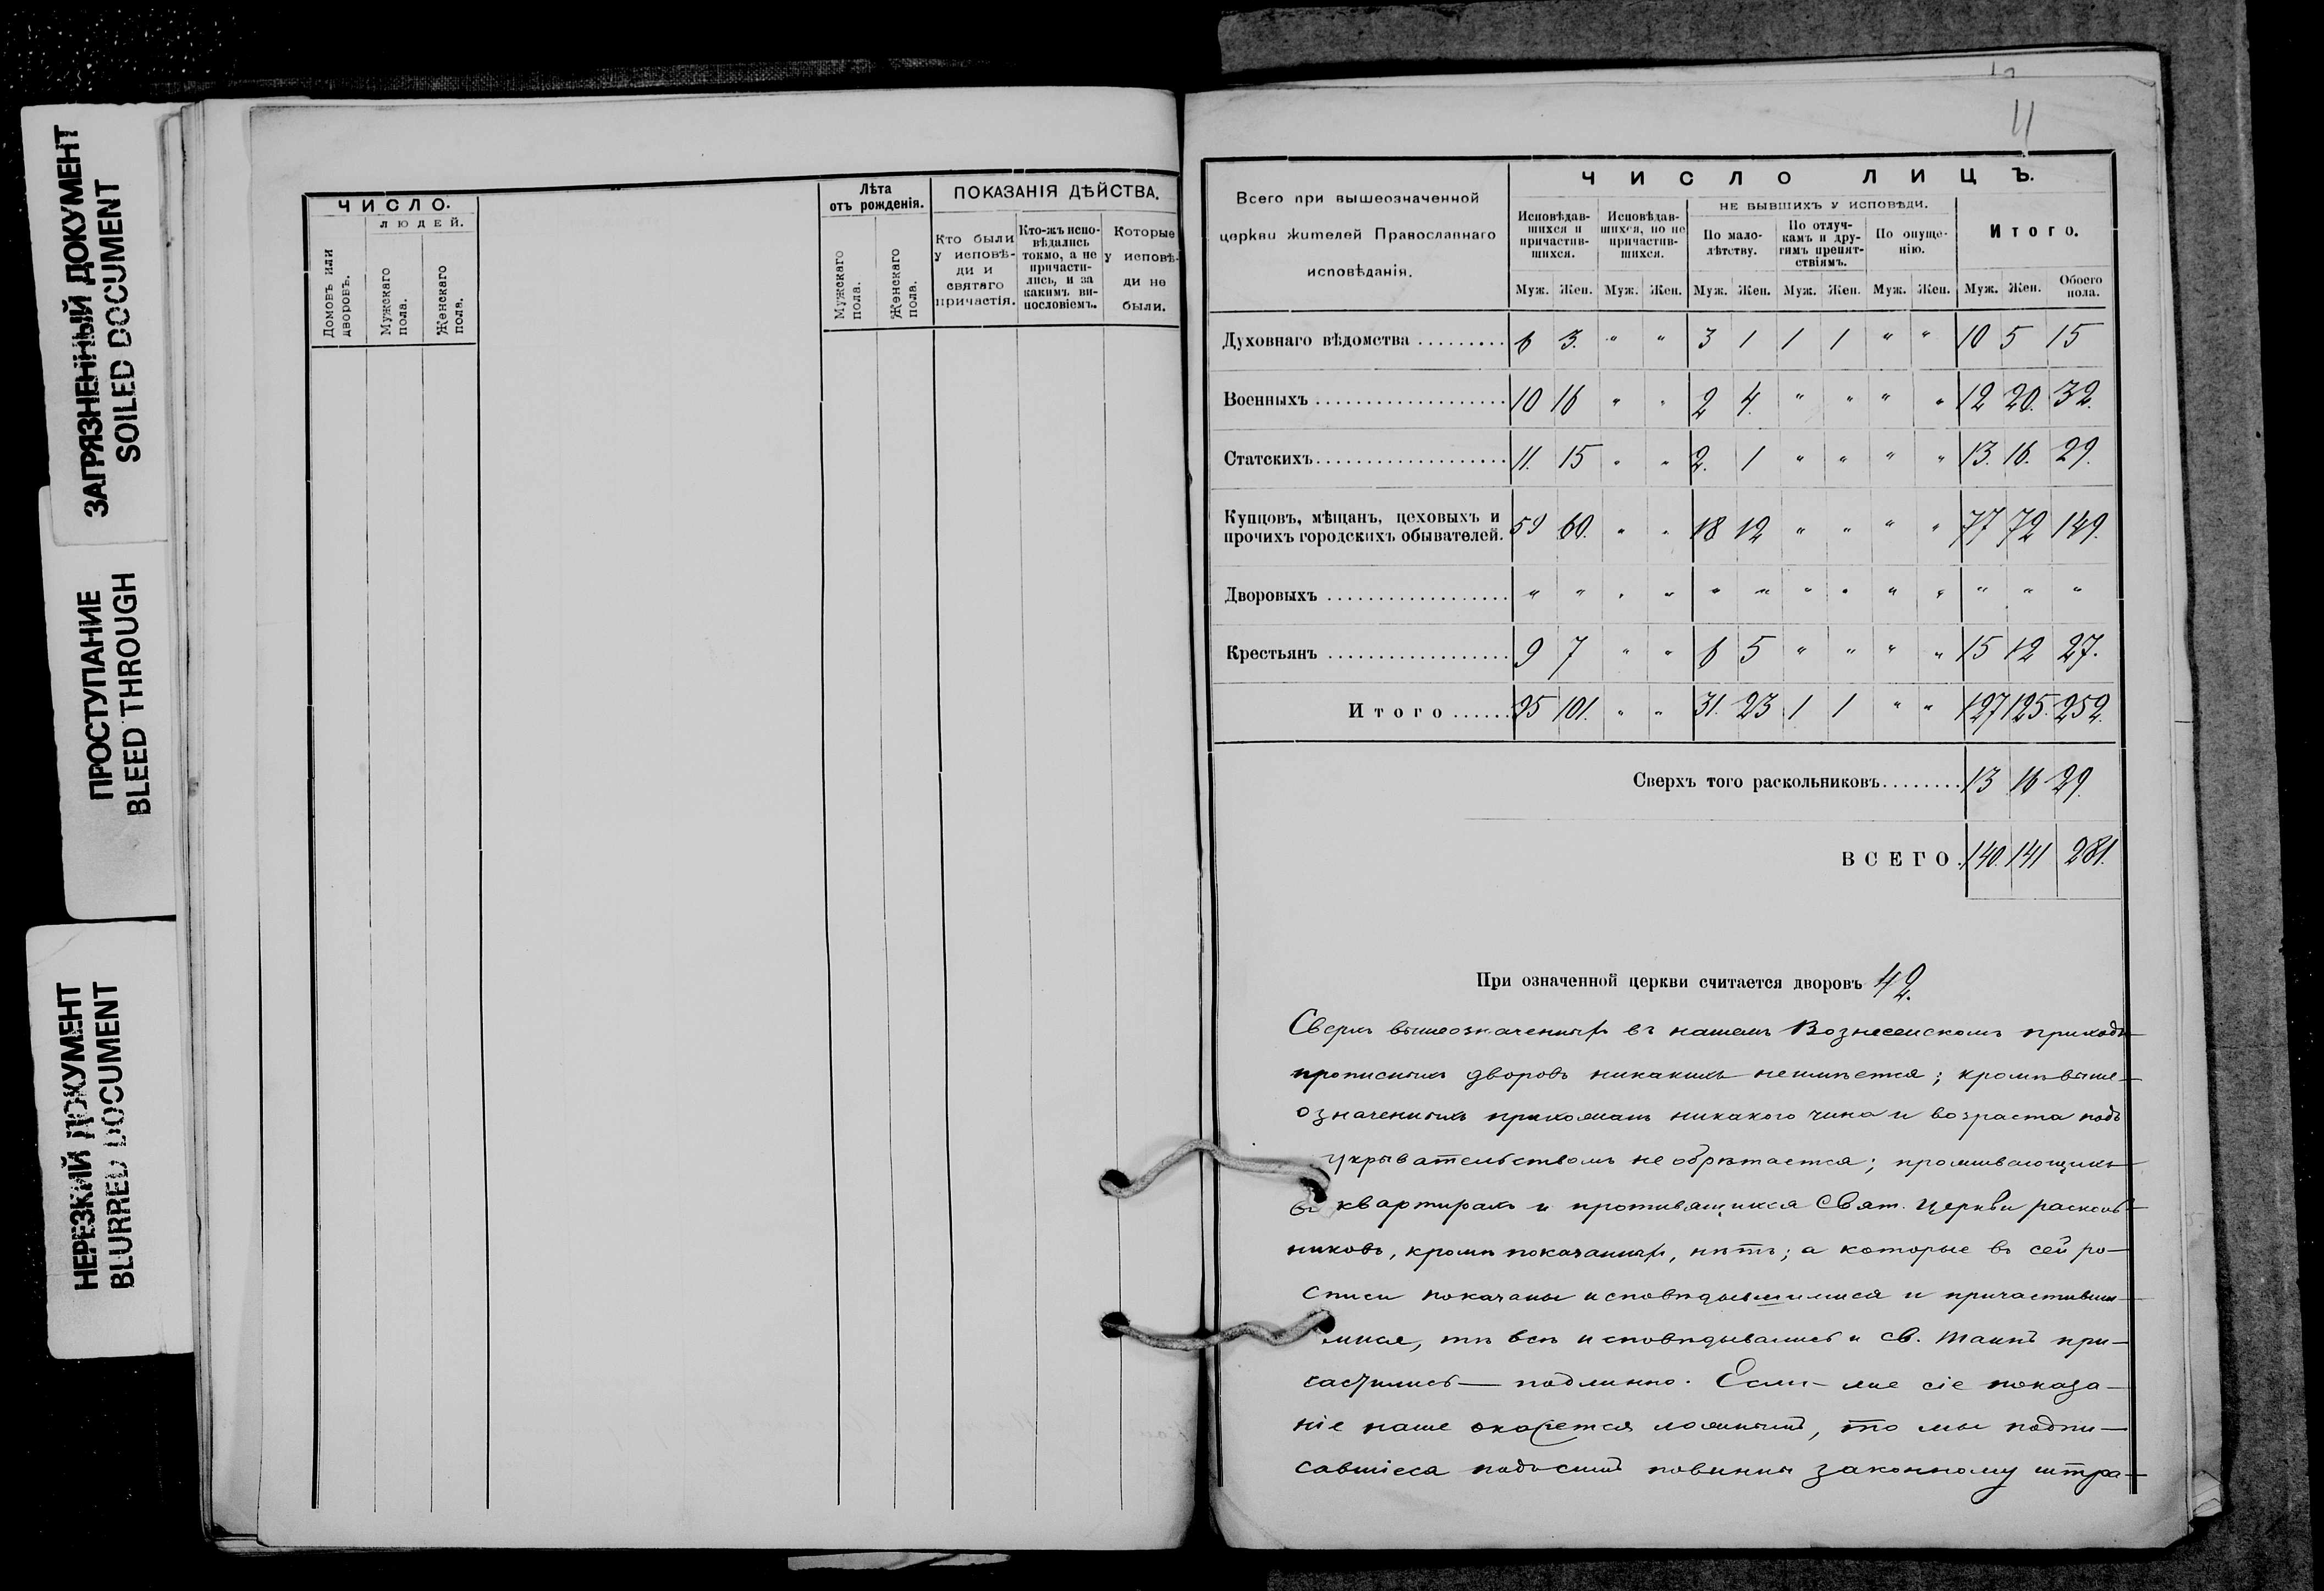 ЗАГРЯЗНЕННЫЙ ДОКУМЕНТ
SOILED DOCUMENT
ПРОСТУПАНИЕ
BLEED THROUGH
НЕРЕЗКИЙ ДОКУМЕНТ
BLURRED DOCUMENT
ЧИСЛО.
ЛЮДЕЙ.
Домовъ или дворовъ.
Мужскаго пола.
Женскаго пола.
Лѣта отъ рожденія.
Мужскаго пола.
Женскаго пола.
ПОКАЗАНІЯ ДѢЙСТВА.
Кто были у исповѣди и святаго причастія.
Кто-жъ исповѣдались токмо, а не причастились, и за какимъ винословіемъ.
Которые у исповѣди не были.
11
Всего при вышеозначенной
церкви жителей Православнаго
исповѣданія.
ЧИСЛО ЛИЦЪ.
Исповѣдавшихся и причастившихся.
Исповѣдавшихся, но не причастившихся.
НЕ БЫВШИХЪ У ИСПОВѢДИ.
По малолѣтству.
По отлучкамъ и другимъ препятствіямъ.
По опущенію.
Итого.
Муж. Жен. Муж. Жен. Муж. Жен. Муж. Жен. Муж. Жен. Муж. Жен. Обоего пола.
Духовнаго вѣдомства ......... 6 3. " " 3 1 1 1 " " 10 5 15
Военныхъ ................... 10 16 " " 2 4. " " " " 12 20. 32.
Статскихъ................... 11. 15 " " 2. 1 " " " " 13. 16. 29.
Купцовъ, мѣщанъ, цеховыхъ и
прочихъ городскихъ обывателей. 59 60. " " 18 12 " " " " 77 72 149.
Дворовыхъ .................. " " " " " " " " " " " " "
Крестьянъ .................. 9 7 " " 6 5 " " " " 15 12 27.
Итого ...... 95 101. " " 31. 23 1 1 " " 127 125. 252.
Сверхъ того раскольниковъ........ 13 16 29.
ВСЕГО. 140. 141 281.
При означенной церкви считается дворовъ 42.
Сверхъ вышеозначенныхъ въ нашемъ Вознесенскомъ приходѣ
прописныхъ дворовъ никакихъ неимѣется; кромѣ выше-
означенныхъ прихожанъ никакого чина и возраста подъ
укрывательствомъ не обрѣтается; проживающихъ
въ квартирахъ и противящихся Свят. Церкви расколь-
никовъ, кромѣ показанныхъ, нѣтъ; а которые въ сей ро-
списи показаны исповѣдывшимися и причастивши-
мися, тѣ всѣ исповѣдывались и св. Таинъ при-
частились — подлинно. Если-же сіе показа-
ніе наше окажется ложнымъ, то мы подпи-
савшіеся подъ симъ повинны законному штра-